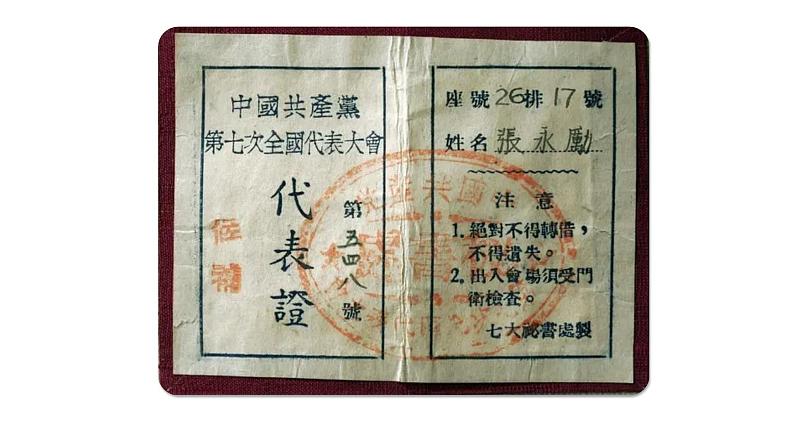 中國共產黨
第七次全國代表大會
代表證
第五四八號
座號26排17號
姓名張永勵
注意
1. 絕對不得轉借，
不得遺失。
2. 出入會場須受門
衛檢查。
七大祕書處製